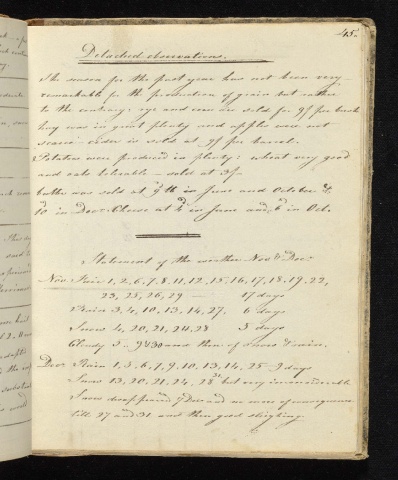 45.
Detached observations.
The season for the past year has not been very
remarkable for the production of grain but rather
to the contrary: rye and corn are sold for 9/ per bush
hay was in great plenty and apples were not
scarce cider in sold at 9/ per barrel.
Potatoes were produced in plenty: wheat very good
and oats tolerable – sold at 3/-
butter was sold at 9d lb in June and October &
10 in Decr Cheese at 4d in June and 6d in Oct.
Statement of the weather Novr & Decr
Nov. Fair 1, 2, 6, 7, 8, 11, 12, 15, 16, 17, 18, 19, 22,
23, 25, 26, 29 — 17 days
Rain 3, 4, 10, 13, 14, 27, 6 days
Snow 4, 20, 21, 24, 28 5 days
Cloudy 5 - 9 & 30 and then of snows & rain.
Decr Rain 1, 5, 6, 7, 9, 10, 13, 14, 25 - 9 days
Snow 13, 20, 21, 24, 28 but very inconsiderable
Snow disappeared 7 Decr and no more of consequence
till 27 and 31 and then good sleighing